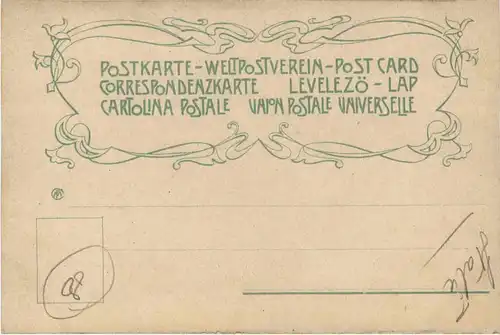 POSTKARTE - WELTPOSTVEREIN - POST CARD
CORRESPONDENZKARTE LEVELEZÖ - LAP
CARTOLINA POSTALE UNION POSTALE UNIVERSELLE